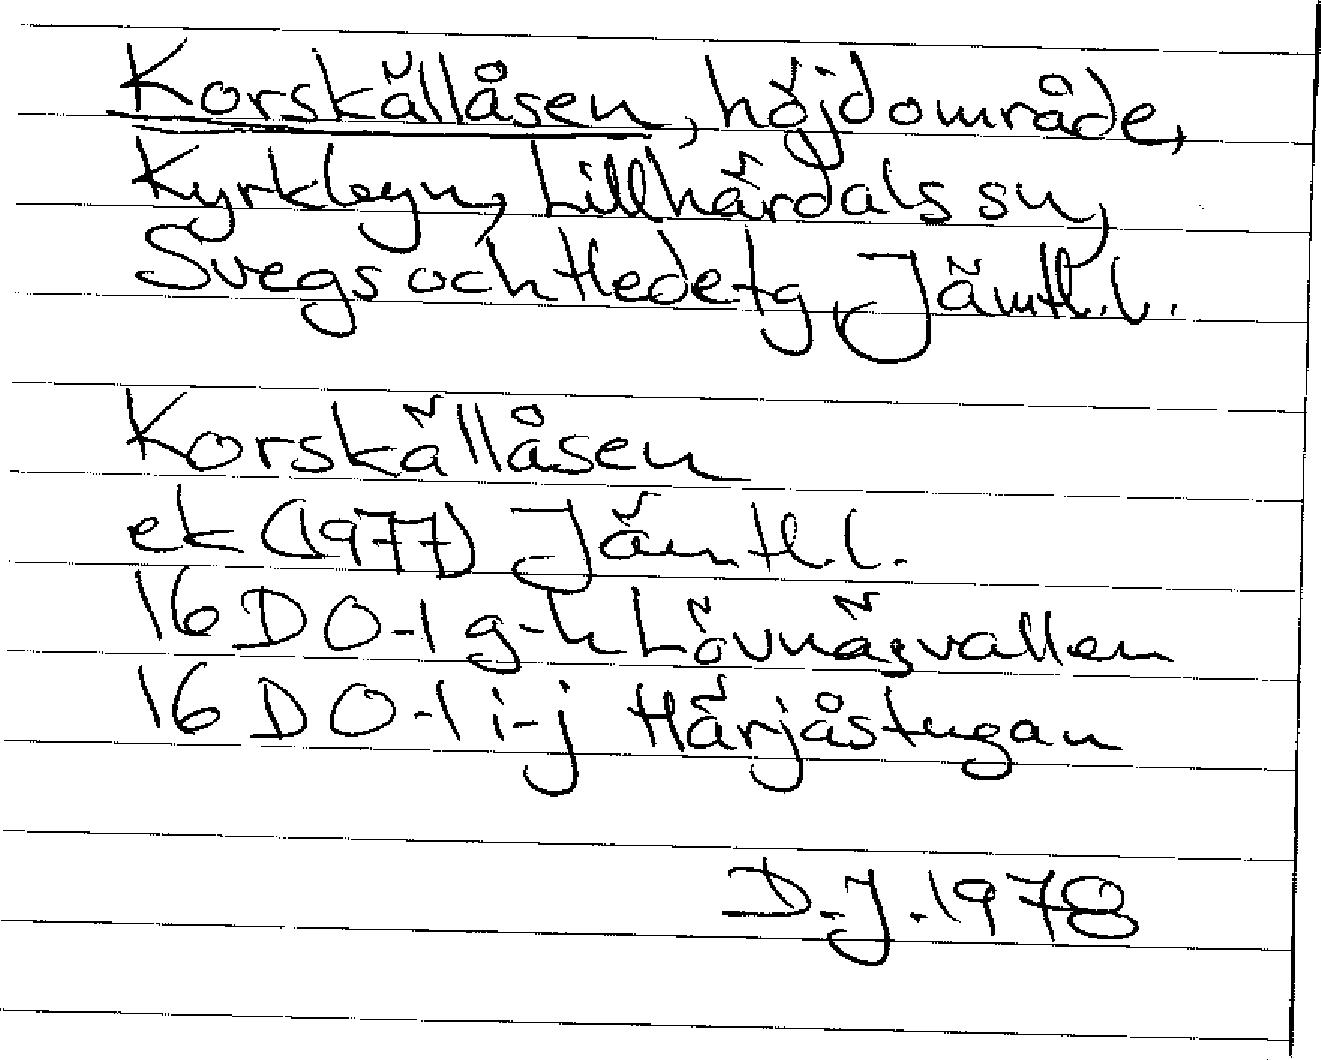 Korskällåsen, höjdområde,
Kyrkbyn, Lillhärdals sn,
Svegs och Hede tg, Jämtl. l.
Korskällåsen
ek (1977) Jämtl. l.
16 D 0-1 g-h Lövnäsvallen
16 D 0-1 i-j Härjåstugan
D.J. 1978